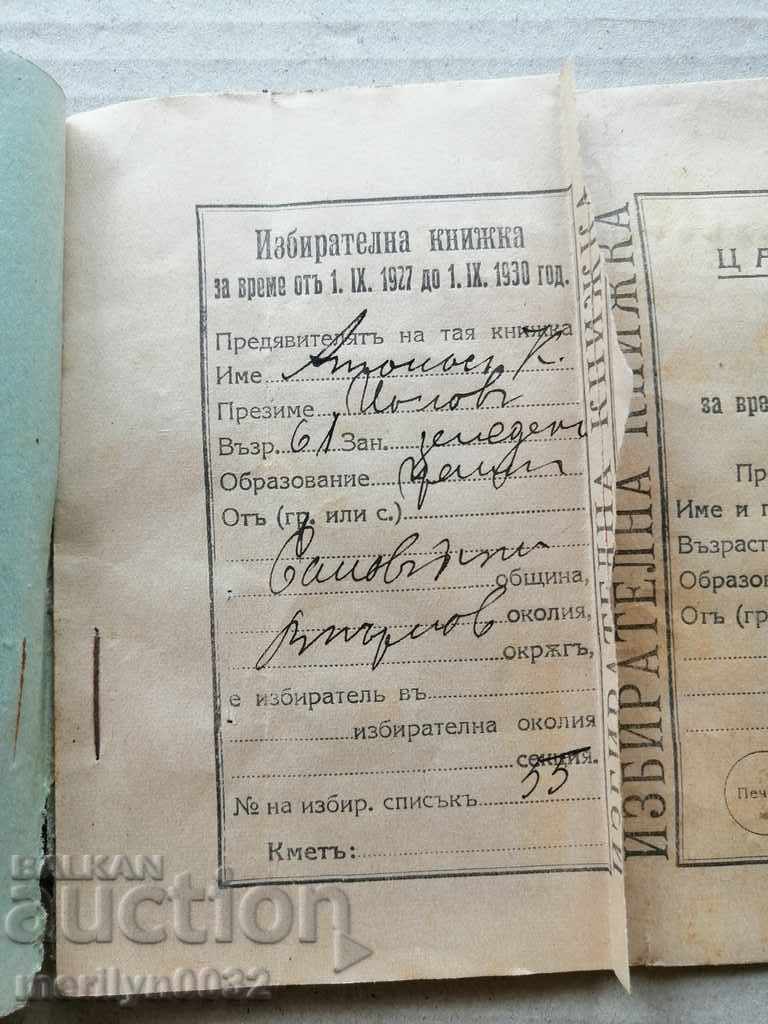 Избирателна книжка
за време отъ 1. IX. 1927 до 1. IX. 1930 год.
Предявительтъ на тая книжка
Име К.
Презиме Поповъ
Възр. 61 Зан.
Образование
Отъ (гр. или с.)
община,
околия,
окрѫгъ,
е избиратель въ
избирателна околия
секция.
№ на избир. списъкъ 55
Кметъ:
ИЗБИРАТЕЛНА КНИЖКА
ИЗБИРАТЕЛНА КНИЖКА
ЦА
за вре
Пр
Име и п
Възраст
Образо
Отъ (гр
Печ
BALKAN
auction
merilyn0032